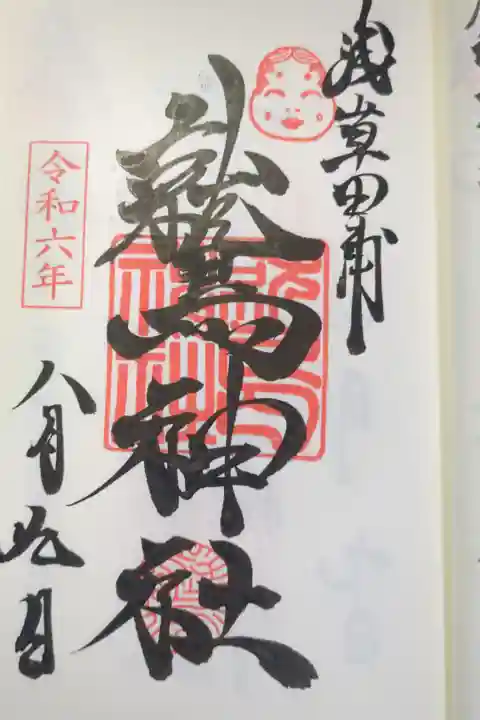 浅草田甫
鷲神社
令和六年
八月九日